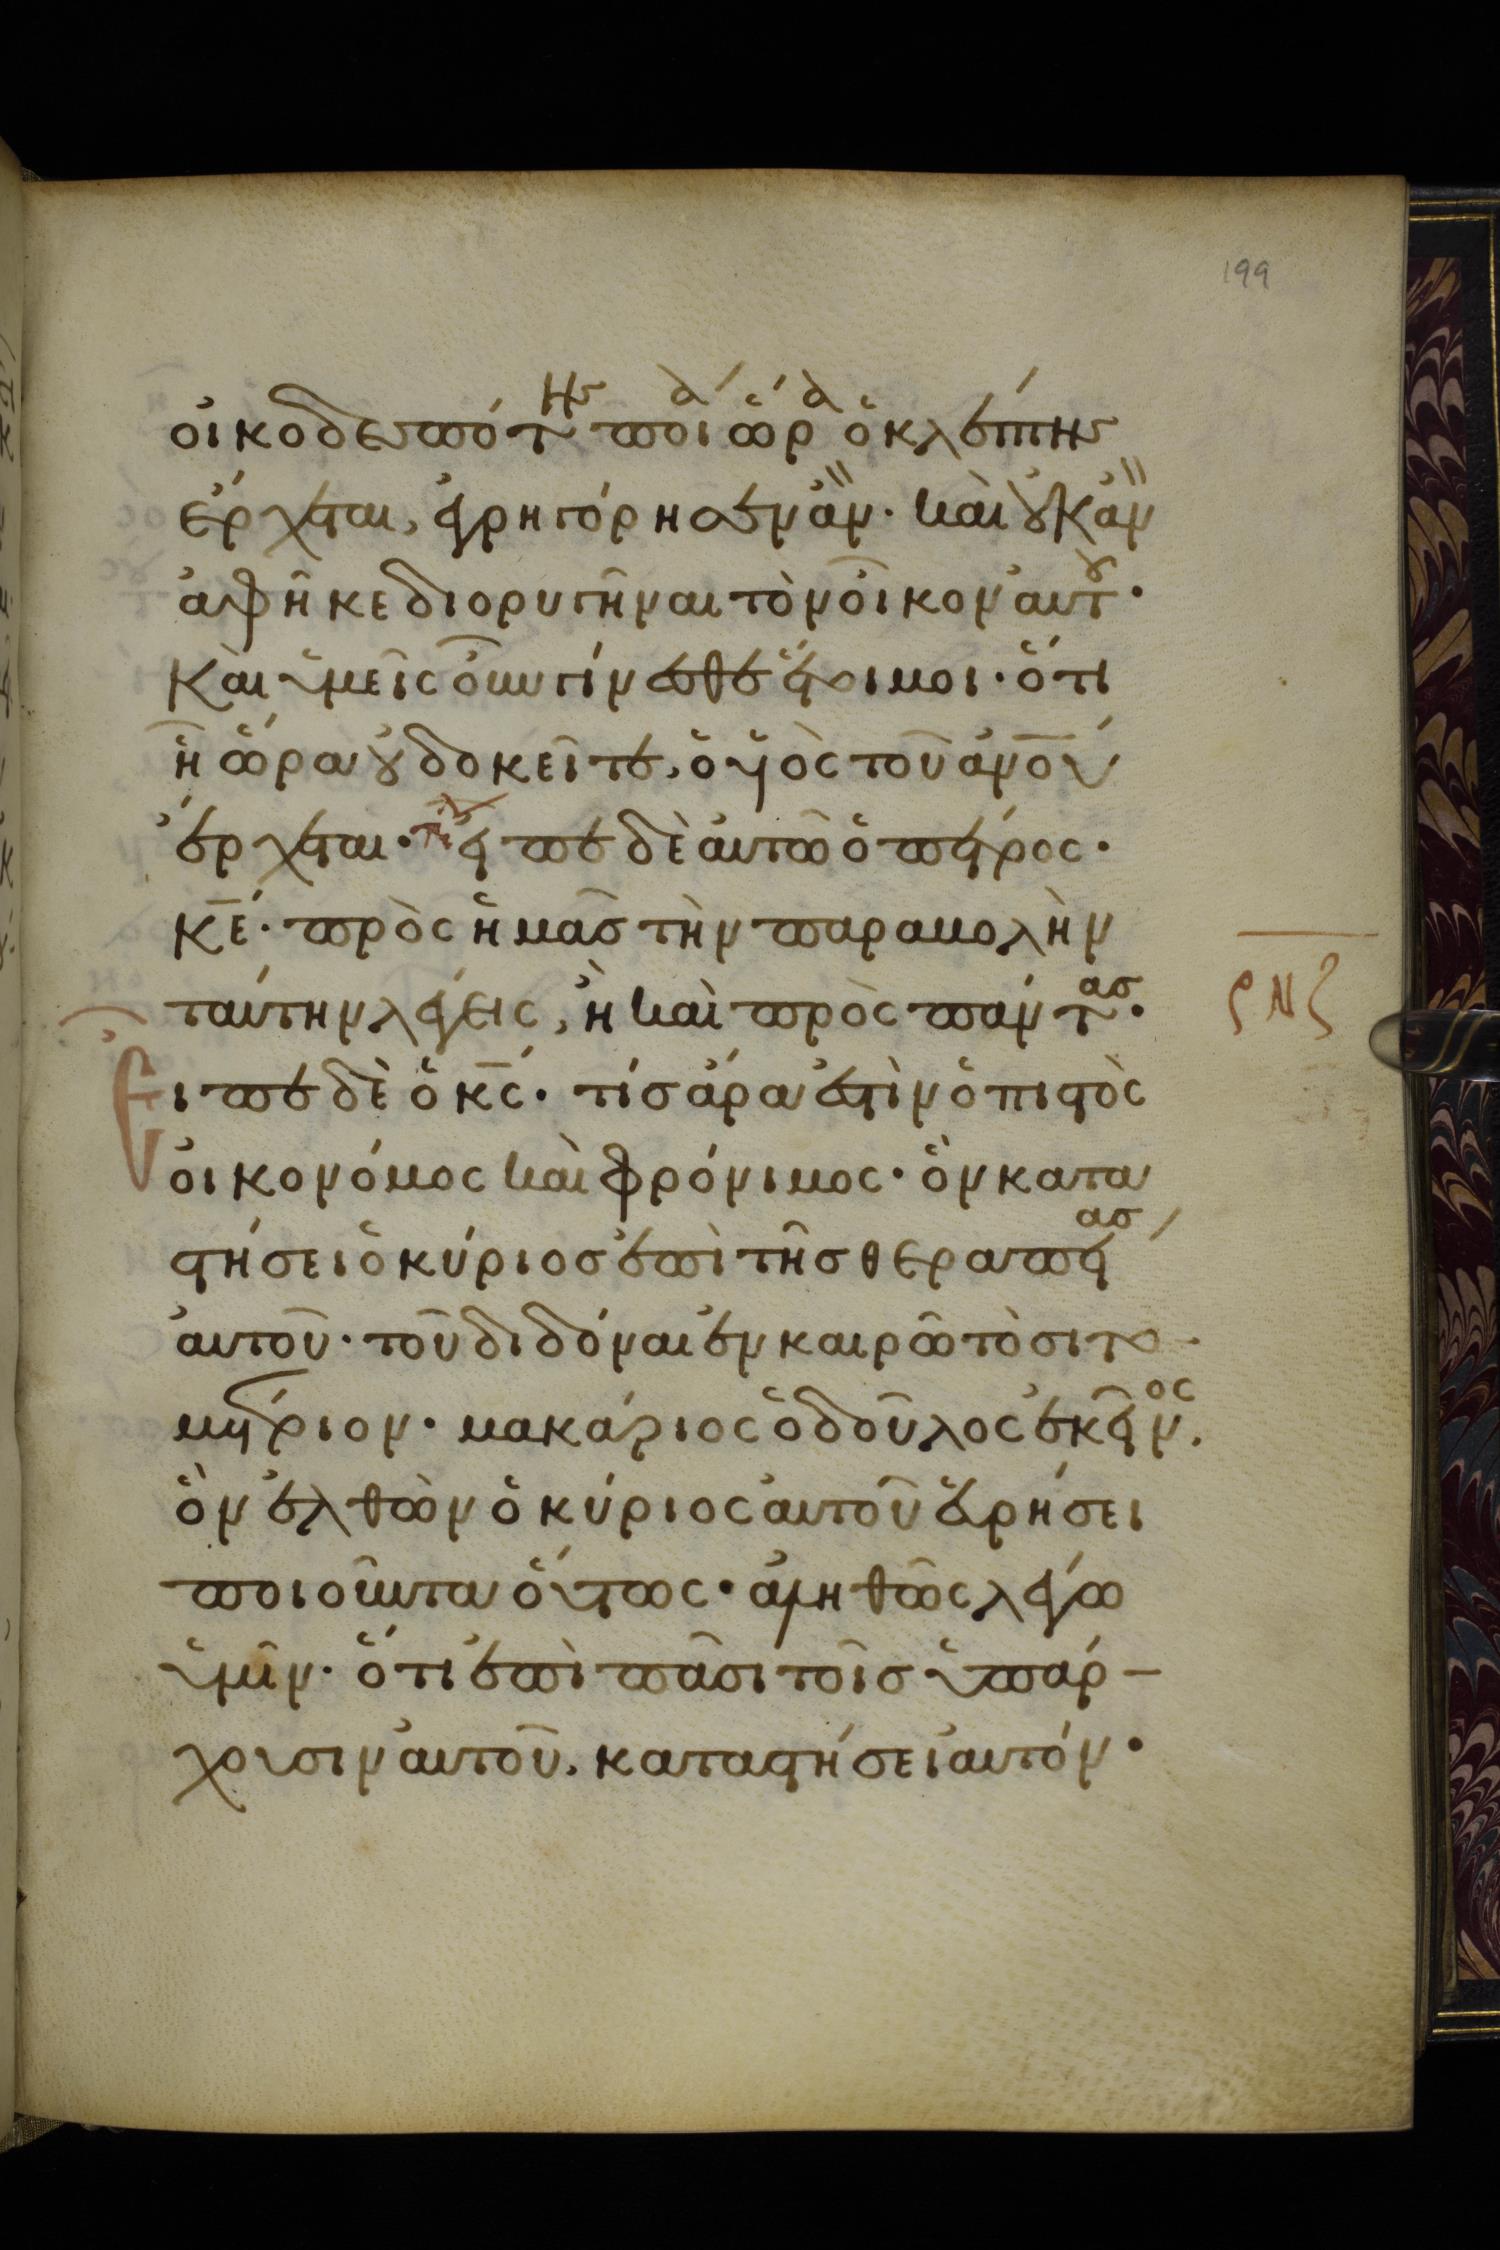 199
οἰκοδεσπότης ποία ὥρα ὁ κλέπτης
ἔρχεται, ἐγρηγόρησεν ἂν· καὶ οὐκ ἂν
ἀφῆκε διορυγῆναι τὸν οἶκον αὐτοῦ·
Καὶ ὑμεῖς οὖν γίνεσθε ἕτοιμοι· ὅτι
ἡ ὥρα οὐ δοκεῖτε, ὁ υἱὸς τοῦ ἀνου
ἔρχεται· εἶπε δὲ αὐτῶ ὁ πέτρος·
κε· πρὸς ἡμᾶς τὴν παραβολὴν
ταύτην λέγεις, ἢ καὶ πρὸς πάντας·
ρνζ
Εἶπε δὲ ὁ κς· τίς ἄρα ἐστὶν ὁ πιστὸς
οἰκονόμος καὶ φρόνιμος· ὃν κατα
στήσει ὁ κύριος ἐπὶ τῆς θεραπείας
αὐτοῦ· τοῦ διδόναι ἐν καιρῶ τὸ σιτο
μέτριον· μακάριος ὁ δοῦλος ἐκεῖνος,
ὃν ἐλθὼν ὁ κύριος αὐτοῦ εὑρήσει
ποιοῦντα οὕτως· ἀληθῶς λέγω
ὑμῖν· ὅτι ἐπὶ πᾶσι τοῖς ὑπάρ-
χουσιν αὐτοῦ, καταστήσει αὐτόν·